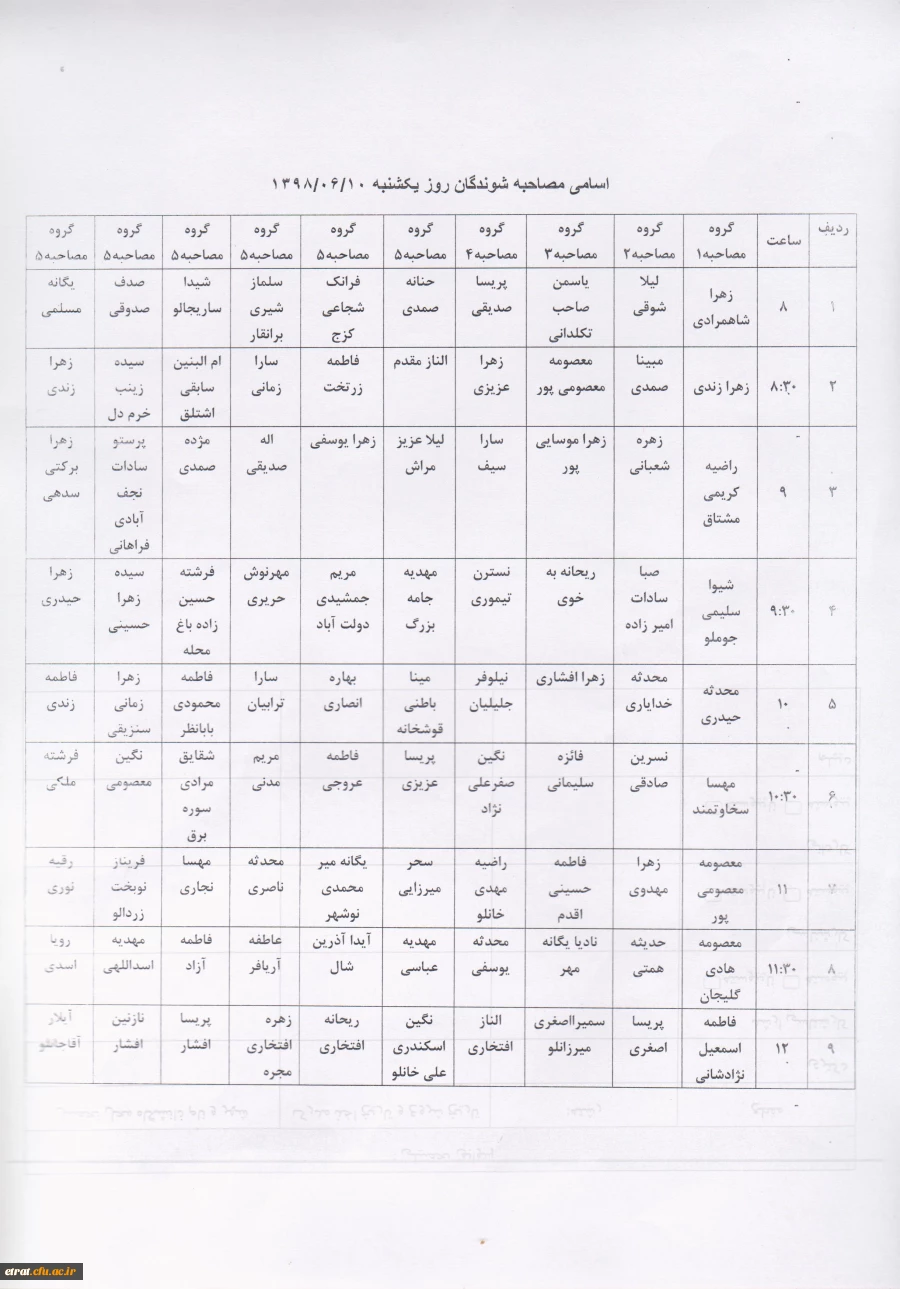 اسامی مصاحبه شوندگان روز یکشنبه ۱۳۹۸/۰۶/۱۰
ردیف ساعت گروه مصاحبه۱ گروه مصاحبه۲ گروه مصاحبه۳ گروه مصاحبه۴ گروه مصاحبه۵ گروه مصاحبه۵ گروه مصاحبه۵ گروه مصاحبه۵ گروه مصاحبه۵ گروه مصاحبه۵
۱ ۸ زهرا شاهمرادی لیلا شوقی یاسمن صاحب تکلدانی پریسا صدیقی حنانه صمدی فرانک شجاعی کزج سلماز شیری برانقار شیدا ساریجالو صدف صدوقی یگانه مسلمی
۲ ۸:۳۰ زهرا زندی مبینا صمدی معصومه معصومی پور زهرا عزیزی الناز مقدم فاطمه زرتخت سارا زمانی ام البنین سابقی اشتلق سیده زینب خرم دل زهرا زندی
۳ ۹ راضیه کریمی مشتاق زهره شعبانی زهرا موسایی پور سارا سیف لیلا عزیز مراش زهرا یوسفی اله صدیقی مژده صمدی پرستو سادات نجف آبادی فراهانی زهرا برکتی سدهی
۴ ۹:۳۰ شیوا سلیمی جوملو صبا سادات امیر زاده ریحانه به خوی نسترن تیموری مهدیه جامه بزرگ مریم جمشیدی دولت آباد مهرنوش حریری فرشته حسین زاده باغ محله سیده زهرا حسینی زهرا حیدری
۵ ۱۰ محدثه حیدری محدثه خدایاری زهرا افشاری نیلوفر جلیلیان مینا باطنی قوشخانه بهاره انصاری سارا ترابیان فاطمه محمودی بابانظر زهرا زمانی سنزیقی فاطمه زندی
۶ ۱۰:۳۰ مهسا سخاوتمند نسرین صادقی فائزه سلیمانی نگین صفرعلی نژاد پریسا عزیزی فاطمه عروجی مریم مدنی شقایق مرادی سوره برق نگین معصومی فرشته ملکی
۷ ۱۱ معصومه معصومی پور زهرا مهدوی فاطمه حسینی اقدم راضیه مهدی خانلو سحر میرزایی یگانه میر محمدی نوشهر محدثه ناصری مهسا نجاری فریناز نوبخت زردالو رقیه نوری
۸ ۱۱:۳۰ معصومه هادی گلیجان حدیثه همتی نادیا یگانه مهر محدثه یوسفی مهدیه عباسی آیدا آذرین شال عاطفه آریافر فاطمه آزاد مهدیه اسداللهی رویا اسدی
۹ ۱۲ فاطمه اسمعیل نژادشانی پریسا اصغری سمیرااصغری میرزانلو الناز افتخاری نگین اسکندری علی خانلو ریحانه افتخاری زهره افتخاری مجره پریسا افشار نازنین افشار آیلار آقاجانلو
etrat.cfu.ac.ir